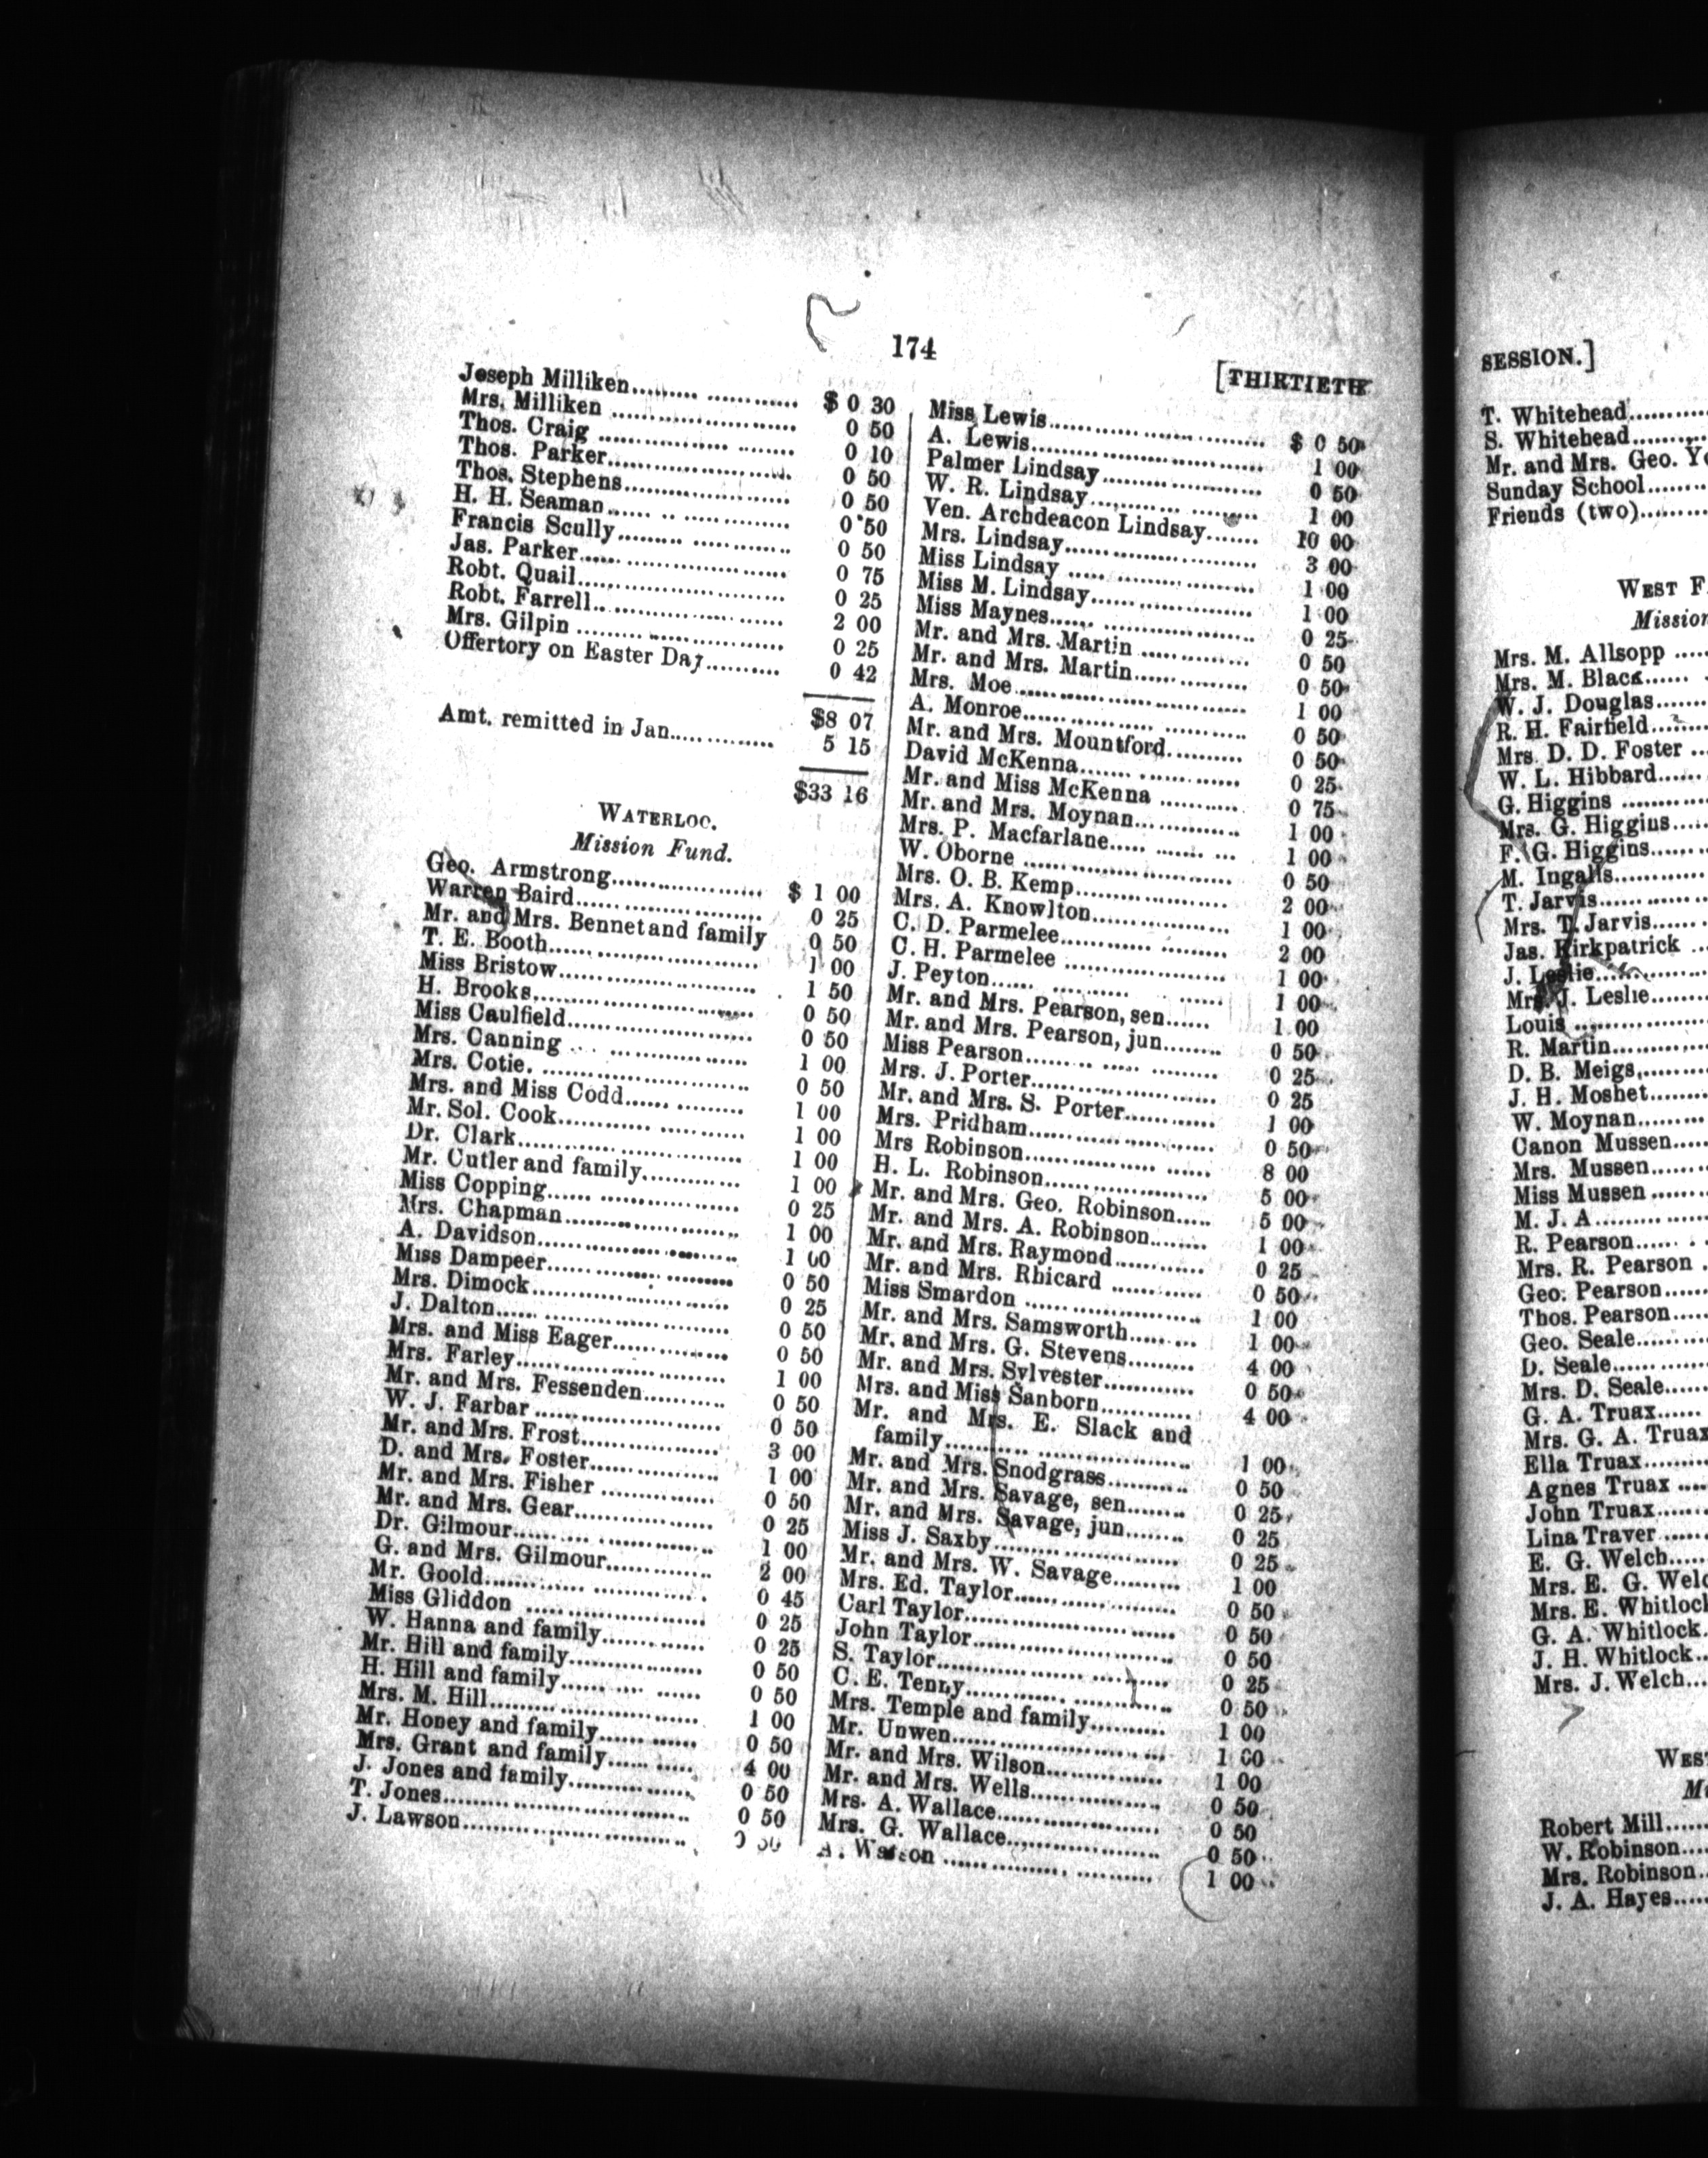 174
[THIRTIETH
Joseph Milliken.................... $ 0 30
Mrs. Milliken .................... 0 50
Thos. Craig .................... 0 10
Thos. Parker.................... 0 50
Thos. Stephens.................... 0 50
H. H. Seaman.................... 0 50
Francis Scully.................... 0 50
Jas. Parker.................... 0 75
Robt. Quail.................... 0 25
Robt. Farrell.................... 2 00
Mrs. Gilpin .................... 0 25
Offertory on Easter Day.......... 0 42
$8 07
Amt. remitted in Jan............... 5 15
$33 16
WATERLOO.
Mission Fund.
Geo. Armstrong.................... $ 1 00
Warren Baird.................... 0 25
Mr. and Mrs. Bennet and family 0 50
T. E. Booth.................... 1 00
Miss Bristow.................... 1 50
H. Brooks.................... 0 50
Miss Caulfield.................... 0 50
Mrs. Canning .................... 1 00
Mrs. Cotie.................... 0 50
Mrs. and Miss Codd............... 1 00
Mr. Sol. Cook.................... 1 00
Dr. Clark.................... 1 00
Mr. Cutler and family............ 1 00
Miss Copping.................... 0 25
Mrs. Chapman.................... 1 00
A. Davidson.................... 1 00
Miss Dampeer.................... 0 50
Mrs. Dimock.................... 0 25
J. Dalton.................... 0 50
Mrs. and Miss Eager............... 0 50
Mrs. Farley.................... 1 00
Mr. and Mrs. Fessenden.......... 0 50
W. J. Farbar .................... 0 50
Mr. and Mrs. Frost............... 3 00
D. and Mrs. Foster............... 1 00
Mr. and Mrs. Fisher ............... 0 50
Mr. and Mrs. Gear............... 0 25
Dr. Gilmour.................... 1 00
G. and Mrs. Gilmour............ 2 00
Mr. Goold.................... 0 45
Miss Gliddon .................... 0 25
W. Hanna and family............ 0 25
Mr. Hill and family............... 0 50
H. Hill and family............... 0 50
Mrs. M. Hill.................... 1 00
Mr. Honey and family............ 0 50
Mrs. Grant and family............ 4 00
J. Jones and family............... 0 50
T. Jones.................... 0 50
J. Lawson.................... 0 50
Miss Lewis.................... $ 0 50
A. Lewis.................... 1 00
Palmer Lindsay.................... 0 50
W. R. Lindsay.................... 1 00
Ven. Archdeacon Lindsay....... 10 00
Mrs. Lindsay.................... 3 00
Miss Lindsay .................... 1 00
Miss M. Lindsay.................... 1 00
Miss Maynes.................... 0 25
Mr. and Mrs. Martin ............... 0 50
Mr. and Mrs. Martin............... 0 50
Mrs. Moe.................... 1 00
A. Monroe.................... 0 50
Mr. and Mrs. Mountford.......... 0 50
David McKenna.................... 0 25
Mr. and Miss McKenna ............ 0 75
Mr. and Mrs. Moynan............... 1 00
Mrs. P. Macfarlane............... 1 00
W. Oborne .................... 0 50
Mrs. O. B. Kemp.................... 2 00
Mrs. A. Knowlton.................... 1 00
C. D. Parmelee.................... 2 00
C. H. Parmelee .................... 1 00
J. Peyton.................... 1 00
Mr. and Mrs. Pearson, sen...... 1 00
Mr. and Mrs. Pearson, jun........ 0 50
Miss Pearson.................... 0 25
Mrs. J. Porter.................... 0 25
Mr. and Mrs. S. Porter............ 1 00
Mrs. Pridham.................... 0 50
Mrs Robinson.................... 8 00
H. L. Robinson.................... 5 00
Mr. and Mrs. Geo. Robinson..... 5 00
Mr. and Mrs. A. Robinson........ 1 00
Mr. and Mrs. Raymond............ 0 25
Mr. and Mrs. Rhicard ............ 0 50
Miss Smardon .................... 1 00
Mr. and Mrs. Samsworth.......... 1 00
Mr. and Mrs. G. Stevens......... 4 00
Mr. and Mrs. Sylvester............ 0 50
Mrs. and Miss Sanborn............ 4 00
Mr. and Mrs. E. Slack and
family.................... 1 00
Mr. and Mrs. Snodgrass.......... 0 50
Mr. and Mrs. Savage, sen........ 0 25
Mr. and Mrs. Savage, jun........ 0 25
Miss J. Saxby.................... 0 25
Mr. and Mrs. W. Savage......... 1 00
Mrs. Ed. Taylor.................... 0 50
Carl Taylor.................... 0 50
John Taylor.................... 0 50
S. Taylor.................... 0 25
C. E. Tenny.................... 0 50
Mrs. Temple and family.......... 1 00
Mr. Unwen.................... 1 00
Mr. and Mrs. Wilson............... 1 00
Mr. and Mrs. Wells............... 0 50
Mrs. A. Wallace.................... 0 50
Mrs. G. Wallace.................... 0 50
A. Watson .................... 1 00
SESSION.]
T. Whitehead..........
S. Whitehead..........
Mr. and Mrs. Geo.
Sunday School.......
Friends (two).......
WEST
Mission
Mrs. M. Allsopp ....
Mrs. M. Black......
W. J. Douglas.......
R. H. Fairfield.......
Mrs. D. D. Foster ...
W. L. Hibbard......
G. Higgins ........
Mrs. G. Higgins.....
F. G. Higgins.......
M. Ingalls..........
T. Jarvis..........
Mrs. T. Jarvis......
Jas. Kirkpatrick ...
J. Leslie..........
Mrs. J. Leslie.......
Louis ..........
R. Martin..........
D. B. Meigs........
J. H. Moshet.......
W. Moynan.........
Canon Mussen.....
Mrs. Mussen.......
Miss Mussen .......
M. J. A..........
R. Pearson..........
Mrs. R. Pearson .
Geo. Pearson......
Thos. Pearson.....
Geo. Seale.........
D. Seale..........
Mrs. D. Seale......
G. A. Truax.......
Mrs. G. A. Truax
Ella Truax........
Agnes Truax ....
John Truax.......
Lina Traver ......
E. G. Welch......
Mrs. E. G. Welc
Mrs. E. Whitlock
G. A. Whitlock.
J. H. Whitlock..
Mrs. J. Welch...
WES
Robert Mill......
W. Robinson....
Mrs. Robinson..
J. A. Hayes.....